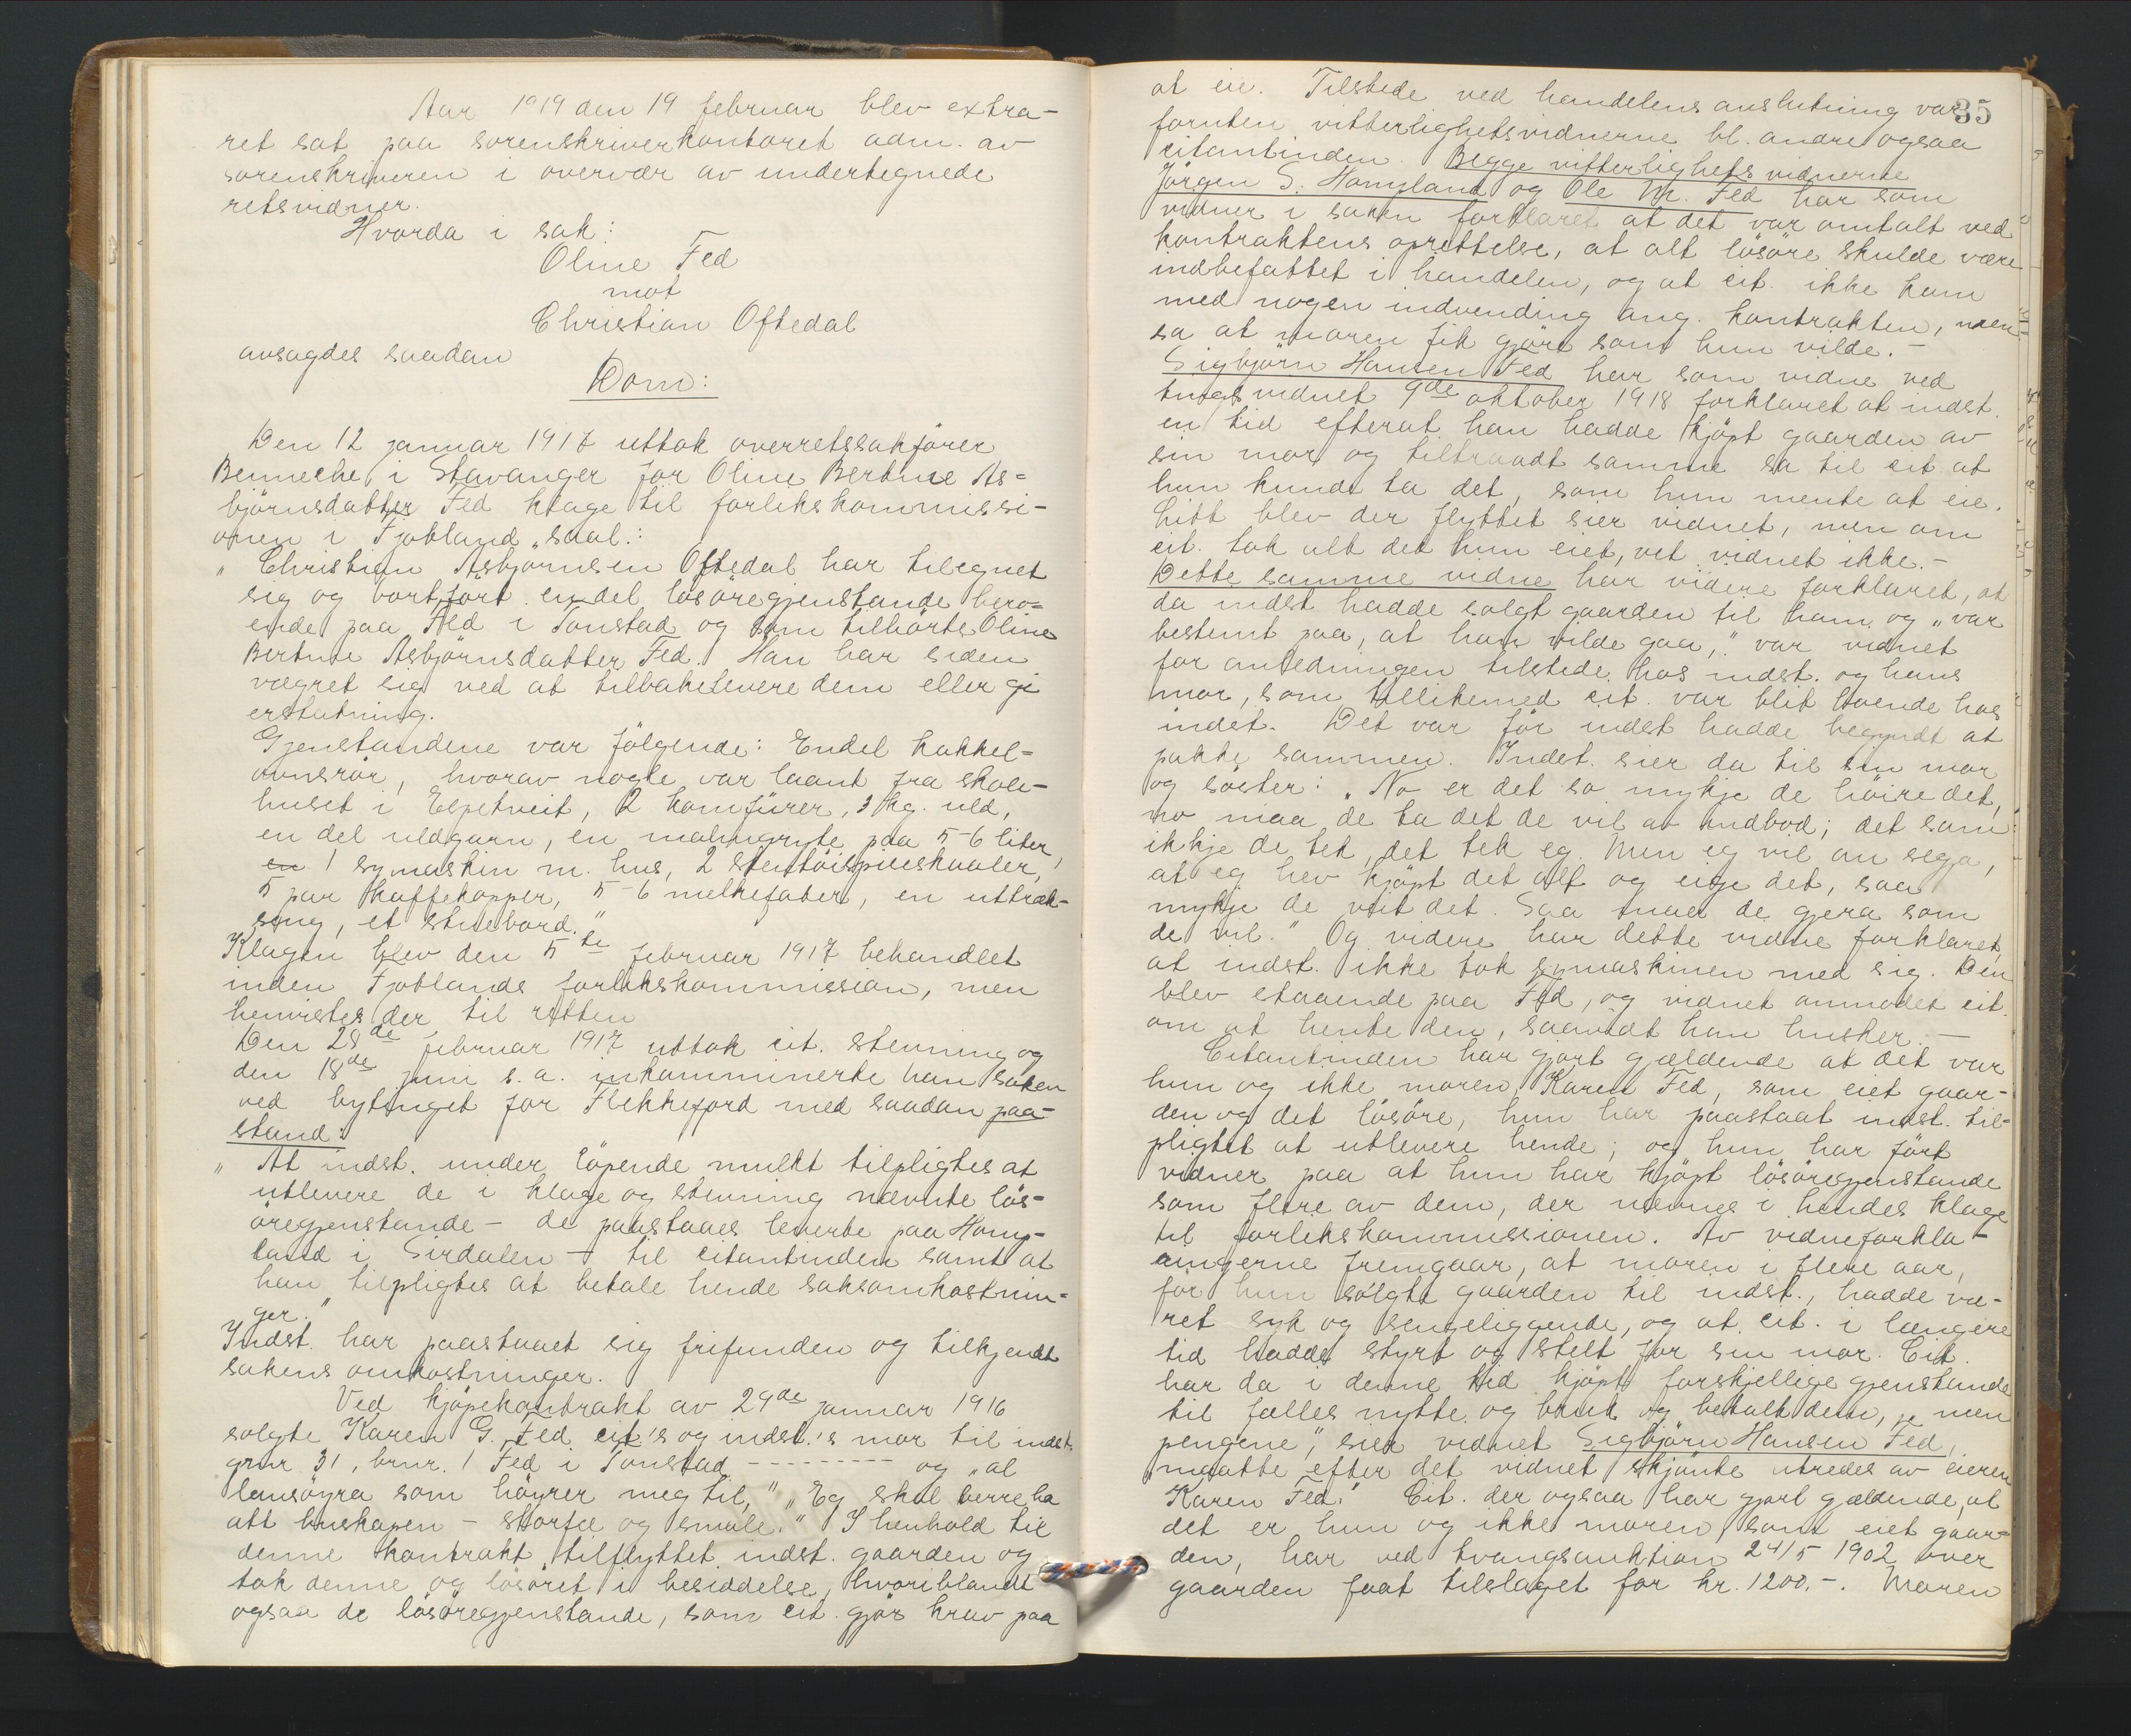 Aar 1919 den 19 februar blev extra-
ret sat paa sorenskriverkontoret adm. av
sorenskriveren i overvær av undertegnede
retsvidner.
Hvorda i sak:
Oline Fed
mot
Christian Oftedal
avsagdes saadan
Dom:
Den 12 januar 1917 uttok overretssakfører
Benneche i Stavanger for Oline Bertine As=
björnsdatter Fed klage til forlikskommissi-
onen i Fjotland saal.:
„ Christian Asbjørnsen Oftedal har tilegnet
sig og bortført en del løsøregjenstande bero=
ende paa Fed i Tonstad og som tilhørte Oline
Bertine Asbjörnsdatter Fed. Han har siden
vægret sig ved at tilbakelevere dem eller gi
erstatning.
Gjenstandene var følgende: Endel kakkel=
ovnsrör, hvorav nogle var laant fra skole-
huset i Espetveit, 2 komfürer, 3 kg. uld,
en del uldgarn, en malmgryte paa 5-6 liter,
en 1 symaskin m. hus, 2 stentöispuleskaaler,
5 par kaffekopper, 5-6 melkefater, en uttræk-
seng, et stuebord."
Klagen blev den 5te februar 1917 behandlet
inden Fjotlands forlikskommission, men
henvistes der til retten
Den 28de februar 1917 uttok cit. stevning og
den 18de juni s.a. inkamminerte han saken
ved bytinget for Flekkefjord med saadan paa-
stand:
„ At indst. under löpende mulkt tilpligtes at
utlevere de i klage og stevning nævnte løs-
öregjenstande - de paastaaes leverte paa Hom-
land i Sirdalen - til citantinden samt at
han tilpligtes at betale hende saksomkostnin=
ger."
Indst. har paastaaet sig frifunden og tilkjendt
sakens omkostninger.
Ved kjöpekontrakt av 29de januar 1916
solgte Karen G. Fed cit's og indst.'s mor til indst.
grnr 31, brnr. 1 Fed i Tonstad - - - - - - - - - og „al
lausöyra som höyrer meg til," „Eg skal berre ha
att buskapen - storfe og smale." I henhold til
denne kontrakt tilflyttet indst. gaarden og
tok denne og lösöret i besiddelse, hvoriblandt
ogsaa de lösöregjenstande, som cit. gjör krav paa
35
at eie. Tilstede ved handelens avslutning var
foruten vitterlighetsvidnerne bl. andre ogsaa
citantinden. Begge vitterlighetsvidnerne
Jörgen S. Homland og Ole M. Fed har som
vidner i saken forklaret at det var omtalt ved
kontraktens oprettelse, at alt lösöre skulde være
indbefattet i handelen, og at cit. ikke kom
med nogen indvending ang. kontrakten, men
sa at moren fik gjöre som hun vilde. -
Sigbjörn Hansen Fed har som vidne ved
tingsvidnet 9de oktober 1918 forklaret at indst.
en tid efterat han hadde kjöpt gaarden av
sin mor og tiltraadt samme sa til cit at
hun kunde ta det, som hun mente at eie.
Litt blev der flyttet sier vidnet, men om
cit. tok alt det hun eiet, vet vidnet ikke. -
Dette samme vidne har videre forklaret, at
da indst hadde solgt gaarden til ham og „var
bestemt paa, at han vilde gaa," var vidnet
for anledningen tilstede hos indst. og hans
mor, som tillikemed cit. var blit boende hos
indst. Det var för indst hadde begyndt at
pakke sammen. Indst. sier da til sin mor
og söster: „No er det so mykje de höire det,
no maa de ta det de vil av indbod; det som
ikkje de tek, det tek eg. Men eg vil an segja,
at eg hev kjöpt det alt og eige det, saa
mykje de veit det. Saa maa de gjera som
de vil." Og videre har dette vidne forklaret,
at indst. ikke tok symaskinen med sig. Den
blev staaende paa Fed, og vidnet anmodet cit.
om at hente den, saavidt han husker. -
Citantinden har gjort gjældende at det var
hun og ikke moren Karen Fed, som eiet gaar-
den og det lösöre, hun har paastaat indst. til-
pligtet at utlevere hende; og hun har fört
vidner paa at hun har kjöpt lösöregjenstande
som flere av dem, der nævnes i hendes klage
til forlikskommissionen. Av vidneforkla-
ringerne fremgaar, at moren i flere aar,
for hun solgte gaarden til indst., hadde væ-
ret syk og sengeliggende, og at cit. i længere
tid hadde styrt og stelt for sin mor. Cit.
har da i denne tid kjöpt forskjellige gjenstande
til fælles nytte og bruk og betalt dem, „men
pengene," sier vidnet Sigbjörn Hansen Fed,
„maatte efter det vidnet skjönte utredes av eieren
Karen Fed." Cit. der ogsaa har gjort gjældende, at
det er hun og ikke moren som eiet gaar-
den, har ved tvangsauktion 24/5 1902 over
gaarden faat tilslaget for kr. 1200.-. Moren